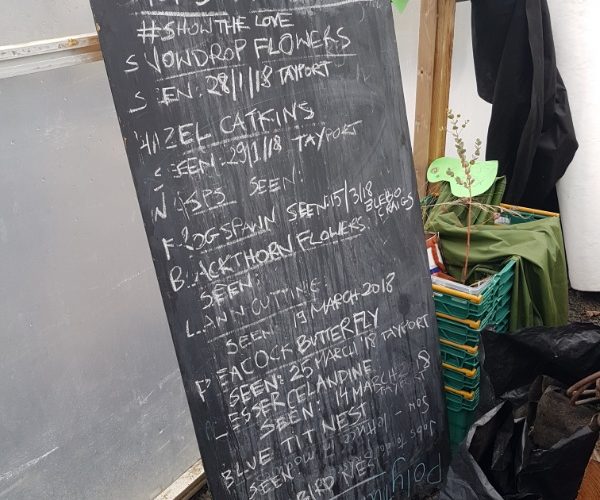 #SHOW THE LOVE
SNOWDROP FLOWERS
SEEN: 28/1/18 TAYPORT
HAZEL CATKINS
SEEN: 29/1/18 TAYPORT
SEEN:
FROGSPAWN SEEN: 15/3/18 BLEBO CRAIGS
BLACKTHORN FLOWERS:
SEEN:
LAWN CUTTING:
SEEN 19 MARCH 2018
PEACOCK BUTTERFLY
SEEN: 25 MARCH '18 TAYPORT
LESSER CELANDINE
SEEN: 14 MARCH
BLUE TIT NEST
SEEN
BIRD NEST
Jobs